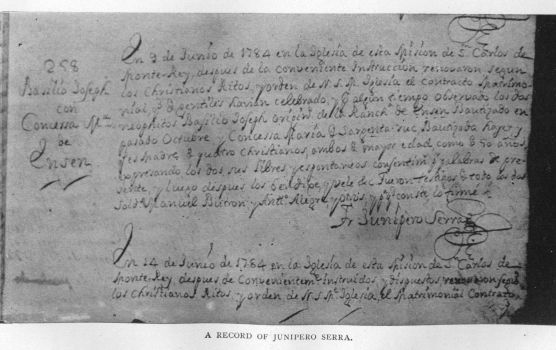 258
Basilio Joseph
con
Concessa Mª
de
Ensen
En 3 de Junio de 1784 en la Iglesia de esta Mision de S. Carlos de
Monte-Rey, despues de la conveniente Instruccion renovaron segun
los Christianos Ritos, y orden de N. S. M. Iglesia el contracto Matrimo
nial, q̃ de gentiles havian celebrado, y algun tiempo observado los dos
neophitos Basilio Joseph de la Ranch. de Ensen Bautizado en
pasado Octubre, y Concessa Maria de Sargenta-ruc Bautizada hoy, y
es padre de quatro Christianos, ambos de mayor edad como de 50 años,
expresando los dos sus libres, y espontaneos consentim. de palabras de pre-
sente, y luego despues los bendixe, y fueron testigos de todo los dos
Sold. Manuel Butron y Antº Alegre y otros, y pª q̃ conste lo firme
Fr Junipero Serra
En 14 de Junio de 1784 en la Iglesia de esta Mision de S. Carlos de
Monte-Rey, despues de Convenientem. instruidos, y dispuestos renovaron segun
los Christianos Ritos, y orden de N. S. M. Iglesia el Matrimonial Contracto,
A RECORD OF JUNIPERO SERRA.